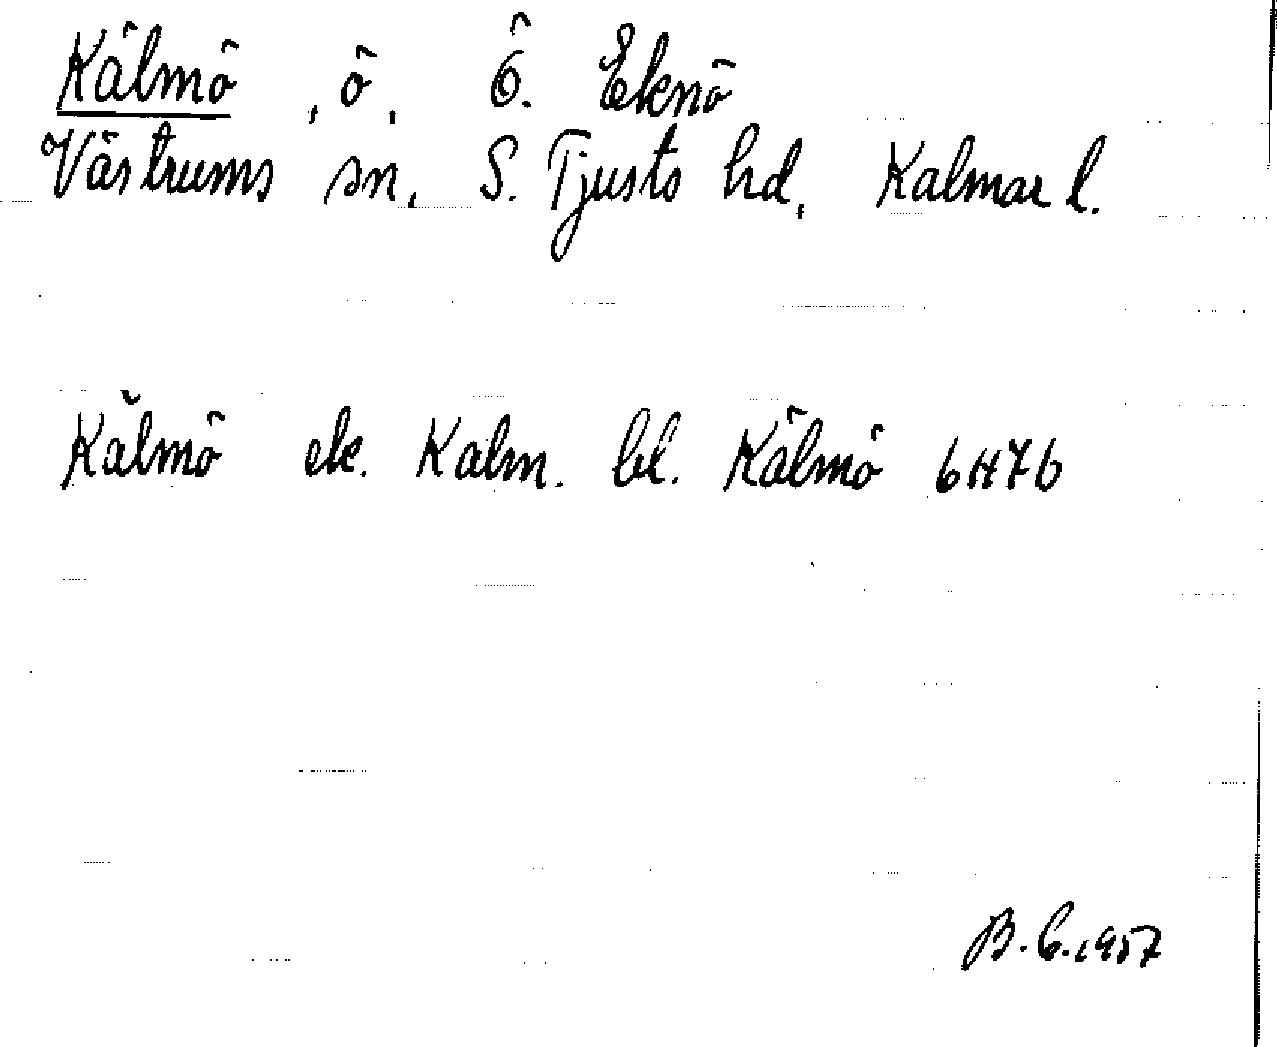 Kälmö, ö, Ö. Eknö
Västrums sn, S. Tjusts hd, Kalmar l.
Kälmö ek. Kalm. bl. Kälmö 6H7b
B. 1957